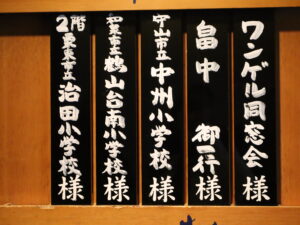 ワンゲル同窓会様
畠中 御一行様
守山市立中州小学校様
和泉市立鶴山台南小学校様
2階 栗東市立治田小学校様